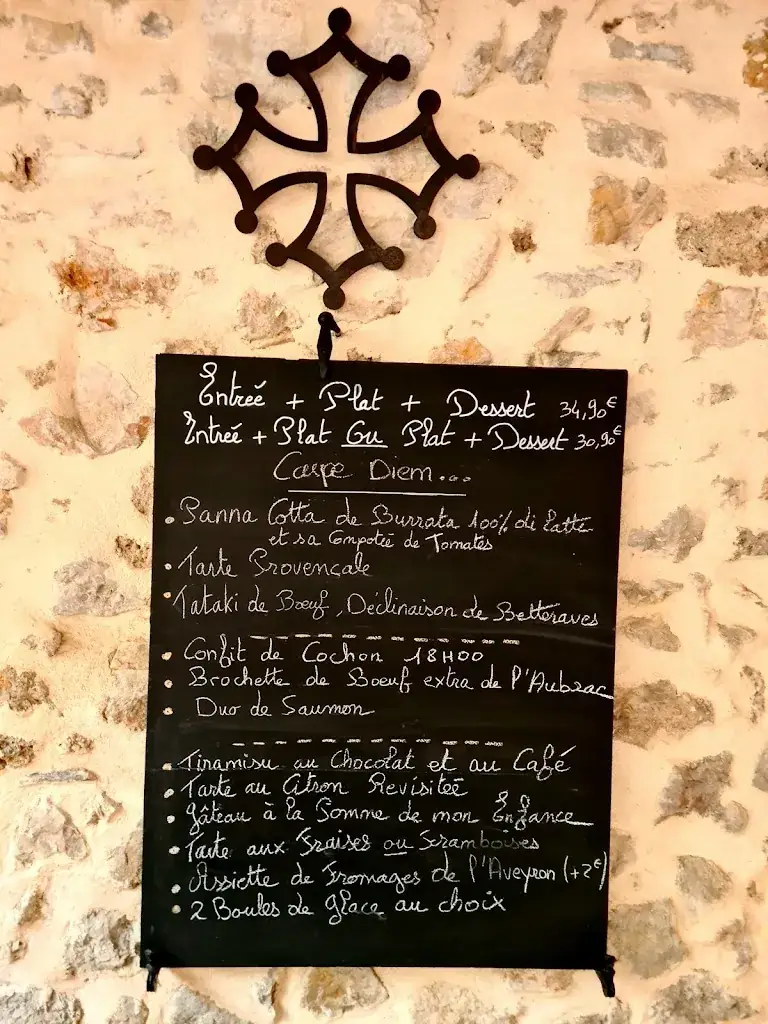 Entrée + Plat + Dessert 34,90€
Entrée + Plat Ou Plat + Dessert 30,90€
Carpe Diem...
• Panna Cotta de Burrata 100% di Latte
et sa Compotée de Tomates
• Tarte Provençale
• Tataki de Bœuf, Déclinaison de Betteraves
• Confit de Cochon 18H00
• Brochette de Bœuf extra de l'Aubrac
• Duo de Saumon
• Tiramisu au Chocolat et au Café
• Tarte au Citron Revisitée
• Gâteau à la Pomme de mon Enfance
• Tarte aux Fraises ou Framboises
• Assiette de Fromages de l'Aveyron (+2€)
• 2 Boules de glace au choix